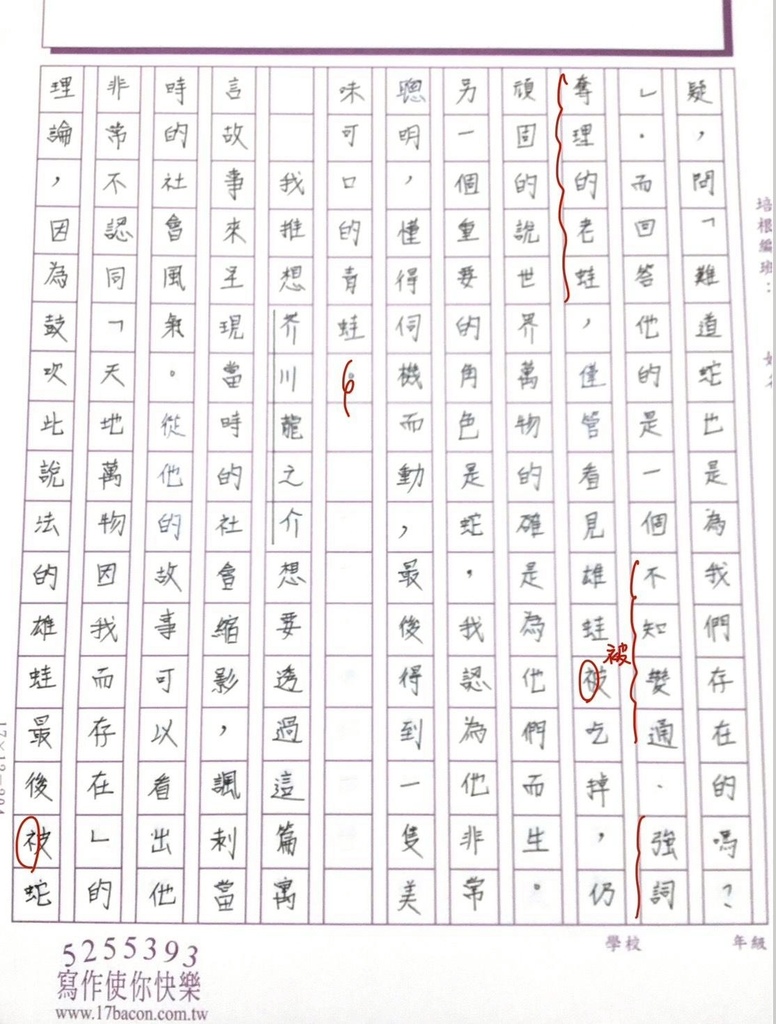 疑，問「難道蛇也是為我們存在的嗎？
」。而回答他的是一個不知變通、強詞
奪理的老蛙，僅管看見雄蛙被吃掉，仍
頑固的說世界萬物的確是為他們而生。
另一個重要的角色是蛇，我認為他非常
聰明，懂得伺機而動，最後得到一隻美
味可口的青蛙。
我推想芥川龍之介想要透過這篇寓
言故事來呈現當時的社會縮影，諷刺當
時的社會風氣。從他的故事可以看出他
非常不認同「天地萬物因我而存在」的
理論，因為鼓吹此說法的雄蛙最後被蛇
被
培根編班：
學校
年級
5255393
寫作使你快樂
www.17bacon.com.tw